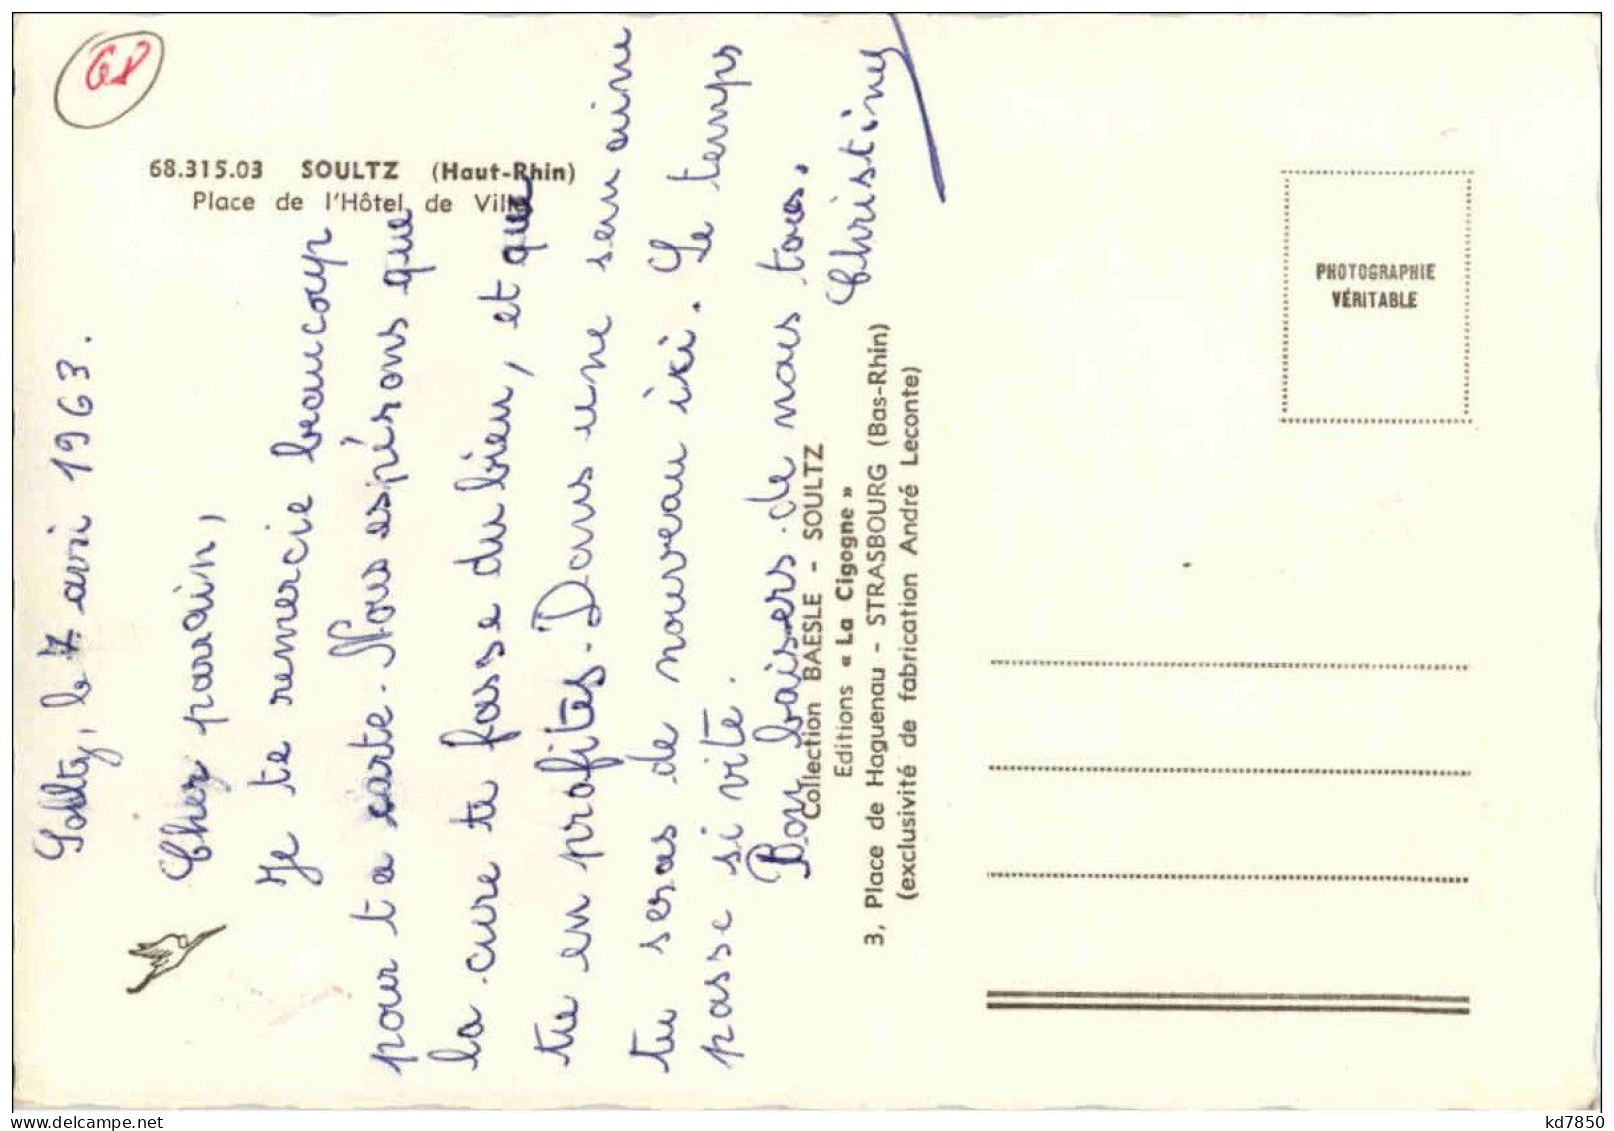 68
68.315.03 SOULTZ (Haut-Rhin)
Place de l'Hôtel de Ville
Soultz, le 7 avril 1963.
Cher parrain,
Je te remercie beaucoup
pour ta carte. Nous espérons que
la cure te fasse du bien, et que
tu en profites. Dans une semaine
tu seras de nouveau ici. Le temps
passe si vite.
Bon baisers de nous tous.
Christiney
Collection BAESLE - SOULTZ
Editions « La Cigogne »
3, Place de Haguenau - STRASBOURG (Bas-Rhin)
(exclusivité de fabrication André Leconte)
PHOTOGRAPHIE
VÉRITABLE
www.delcampe.net
kd7850